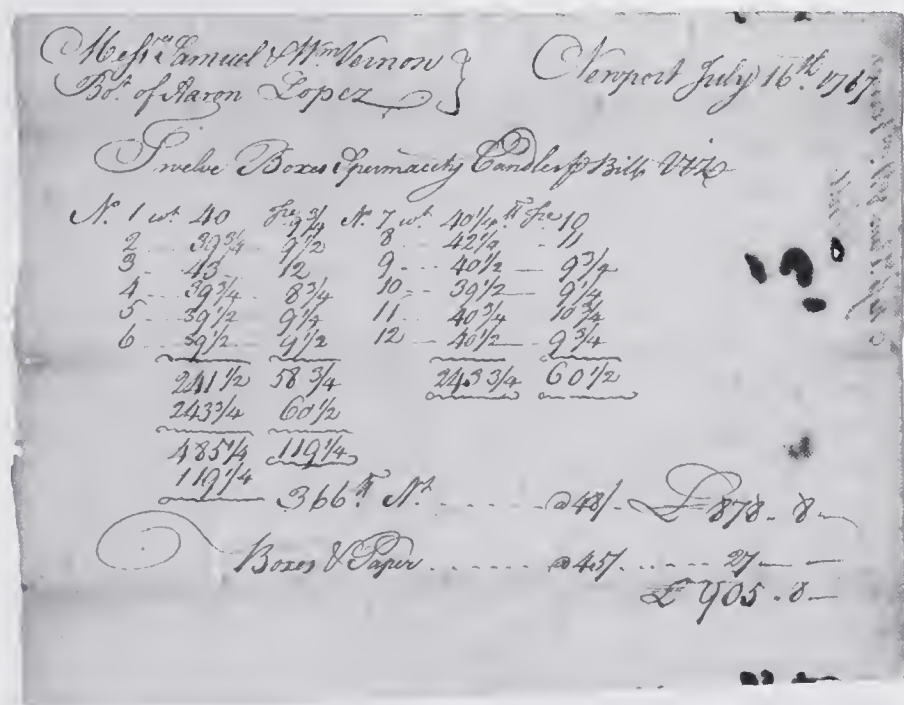 Messrs Samuel & Wm Vernon } Newport July 16th 1767
Bot. of Aaron Lopez
Twelve Boxes Spermacity Candles p Bill Vizt
No. 1 wt 40 Tre 9 3/4 No. 7 wt 40 1/4 lb Tre 10
2 39 3/4 9 1/2 8 42 1/4 11
3 43 12 9 40 1/2 9 3/4
4 39 3/4 8 3/4 10 39 1/2 9 1/4
5 39 1/2 9 1/4 11 40 3/4 10 3/4
6 39 1/2 9 1/2 12 40 1/2 9 3/4
241 1/2 58 3/4 243 3/4 60 1/2
243 3/4 60 1/2
485 1/4 119 1/4
119 1/4
366 lb Nt @ 48/ £ 878 . 8
Boxes & Paper @ 45/ 27
£ 905 . 8